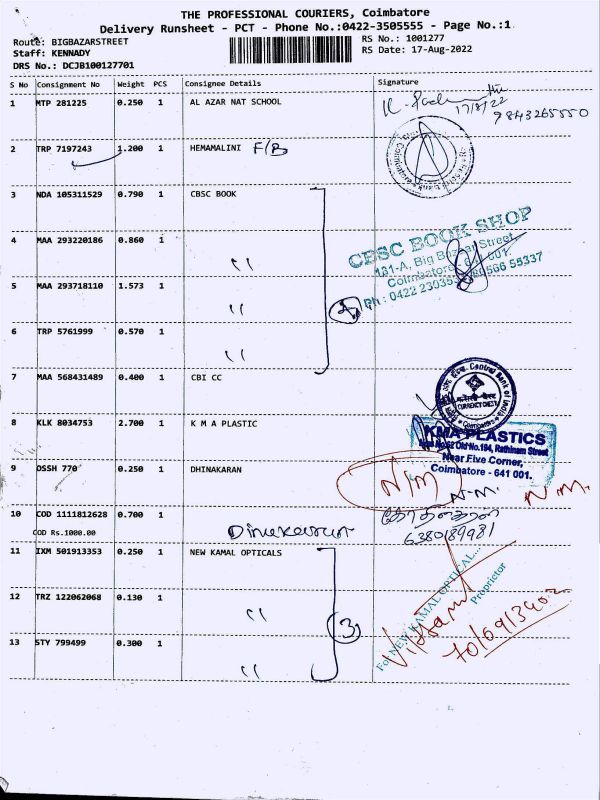 THE PROFESSIONAL COURIERS, Coimbatore
Delivery Runsheet - PCT - Phone No.:0422-3505555 - Page No.:1
Route: BIGBAZARSTREET
RS No.: 1001277
Staff: KENNADY
RS Date: 17-Aug-2022
DRS No.: DCJB100127701
S No Consignment No Weight PCS Consignee Details Signature
1 MTP 281225 0.250 1 AL AZAR NAT SCHOOL
17/8/22
9843265550
2 TRP 7197243 1.200 1 HEMAMALINI F/B
3 NDA 105311529 0.790 1 CBSC BOOK
CBSC BOOK SHOP
131-A, Big Bazaar Street,
Coimbatore - 641 001.
Ph : 0422 23035
566 55337
4 MAA 293220186 0.860 1 〃
5 MAA 293718110 1.573 1 〃
4
6 TRP 5761999 0.570 1 〃
7 MAA 568431489 0.400 1 CBI CC
Central Bank of India
CURRENCY CHEST
Coimbatore
8 KLK 8034753 2.700 1 K M A PLASTIC
KMA PLASTICS
Old No.194, Rathinam Street
Near Five Corner,
Coimbatore - 641 001.
9 OSSH 770 0.250 1 DHINAKARAN
N/M
N.M.
N.M.
10 COD 1111812628 0.700 1
COD Rs.1000.00
6380189981
11 IXM 501913353 0.250 1 NEW KAMAL OPTICALS
For NEW KAMAL OPTICAL...
Proprietor
12 TRZ 122062068 0.130 1 〃
3
13 STY 799499 0.300 1 〃